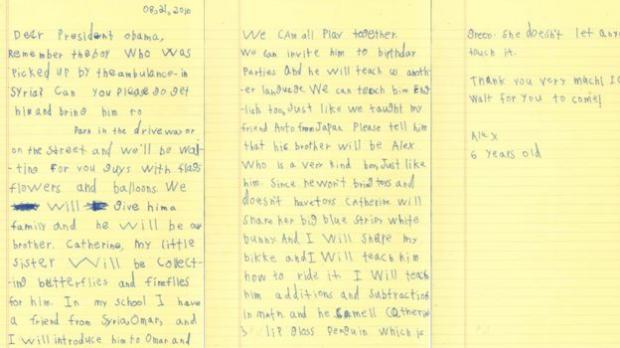 08,21,2016
Dear President obama,
Remember the boy Who was
picked up by the ambulance in
Syria? Can you please go get
him and bring him ro
Park in the driveway or
on the street and we'll be wai-
ting For you guys with flags
flowers and balloons. We
will give him a
family and he will be our
brother. Catherine, my little
sister Will be collect-
ing butterflies and fireflies
for him. In my school I have
a friend from Syria, Omar, and
I will introduce him to Omar and
We CAn all Play together.
We can invite him to birthday
Parties And he Will teach us anoth-
er language. We can teach him Eng-
lish too, Just like we taught my
friend Auto from Japan. Please tell him
that his brother will be Alex
Who is a very kind boy, Just like
him. Since he won't bring toys and
doesn't have toys Catherine will
share her big blue stripy white
bunny. And I Will share my
bikke and I Will teach him
how to ride it. I Will teach
him additions and subtractions
in math. and he smell Catherine
lip gloss Penguin which is
green. She doesn't let any
touch it.
Thank you very mach! I c
wait for you to come!
Alex
6 years old